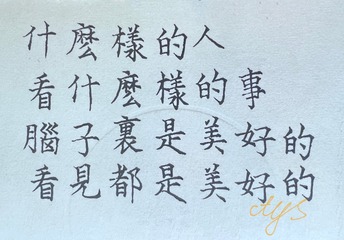 什麼樣的人
看什麼樣的事
腦子裏是美好的
看見都是美好的